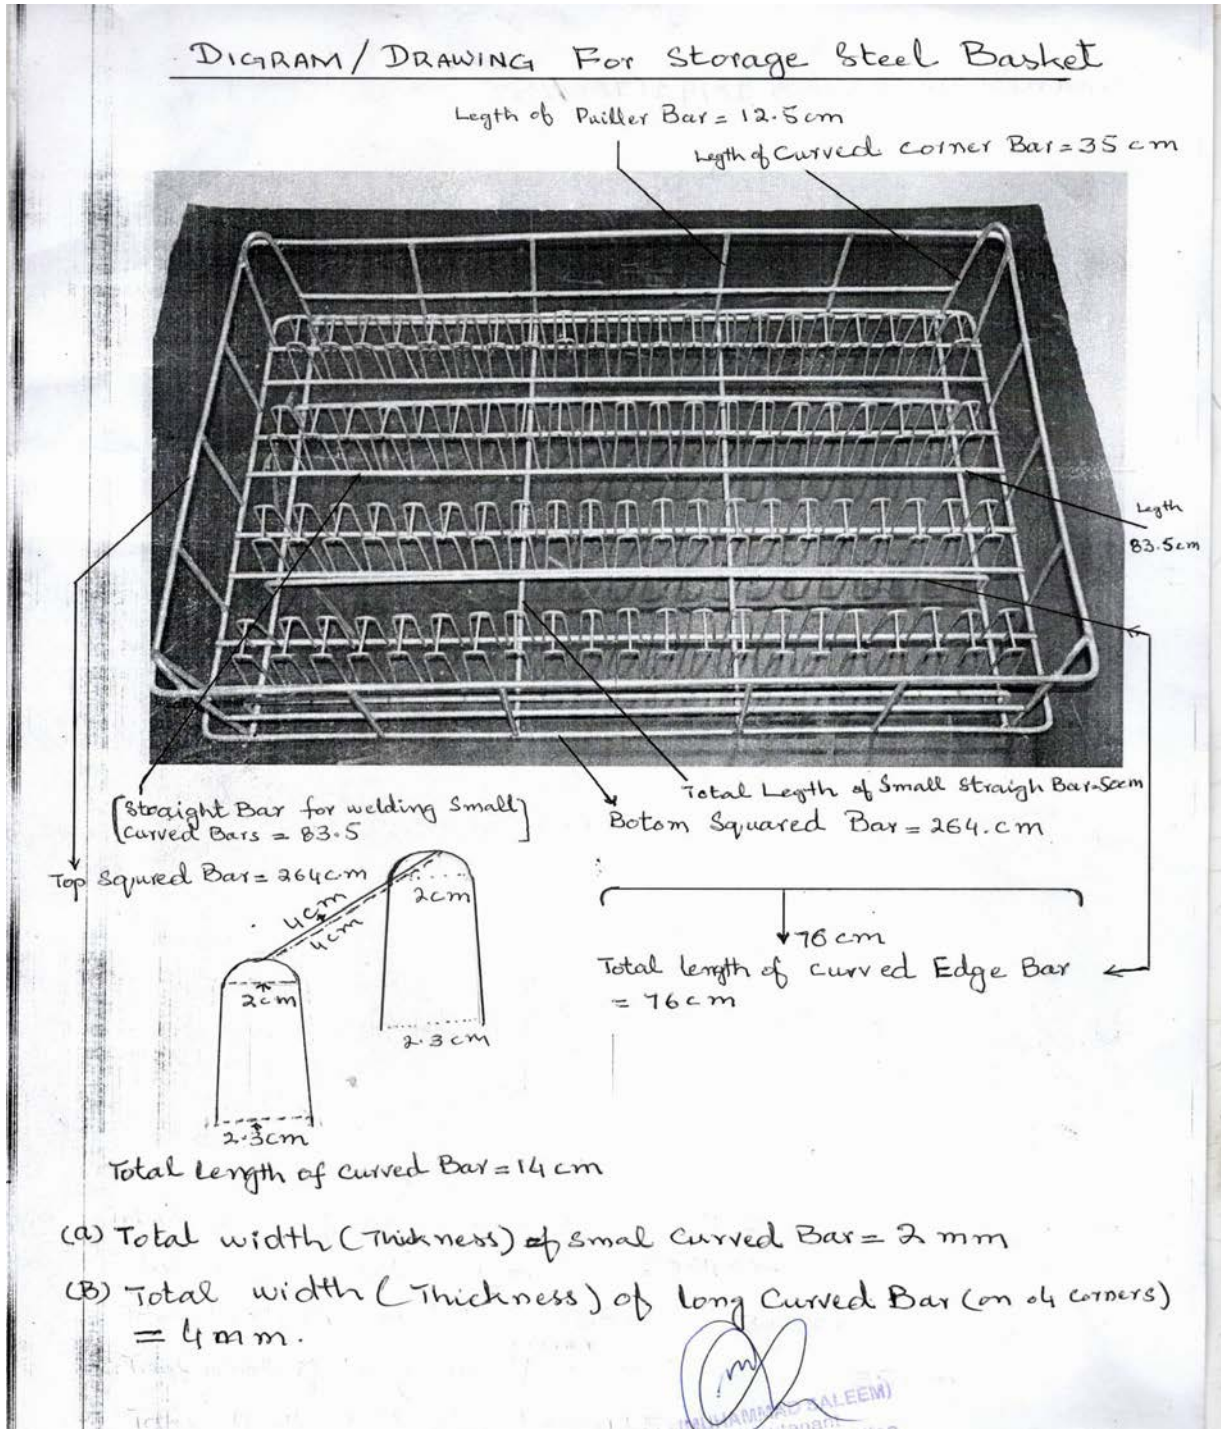 DIGRAM/DRAWING For Storage Steel Basket
Legth of Puiller Bar = 12.5 cm
Legth of Curved corner Bar = 35 cm
Legth
83.5cm
Total Legth of Small Straigh Bar=
[Straight Bar for welding Small]
[Curved Bars = 83.5]
Botom Squared Bar = 264.cm
Top Squred Bar = 264cm
4cm
4cm
2cm
2cm
2.3cm
2.3cm
76 cm
Total length of curved Edge Bar
= 76cm
Total Length of curved Bar = 14 cm
(a) Total width (Thickness) of Smal Curved Bar = 2 mm
(B) Total width (Thickness) of long Curved Bar (on 04 corners)
= 4mm.
(MUHAMMAD SALEEM)